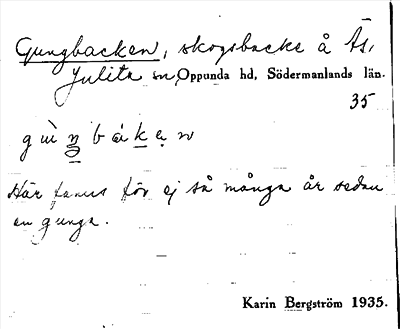 Gungbacken, skogsbacke å Ås,
Julita sn, Oppunda hd, Södermanlands län.
35
Här fanns för ej så många år sedan
en gunga.
Karin Bergström 1935.